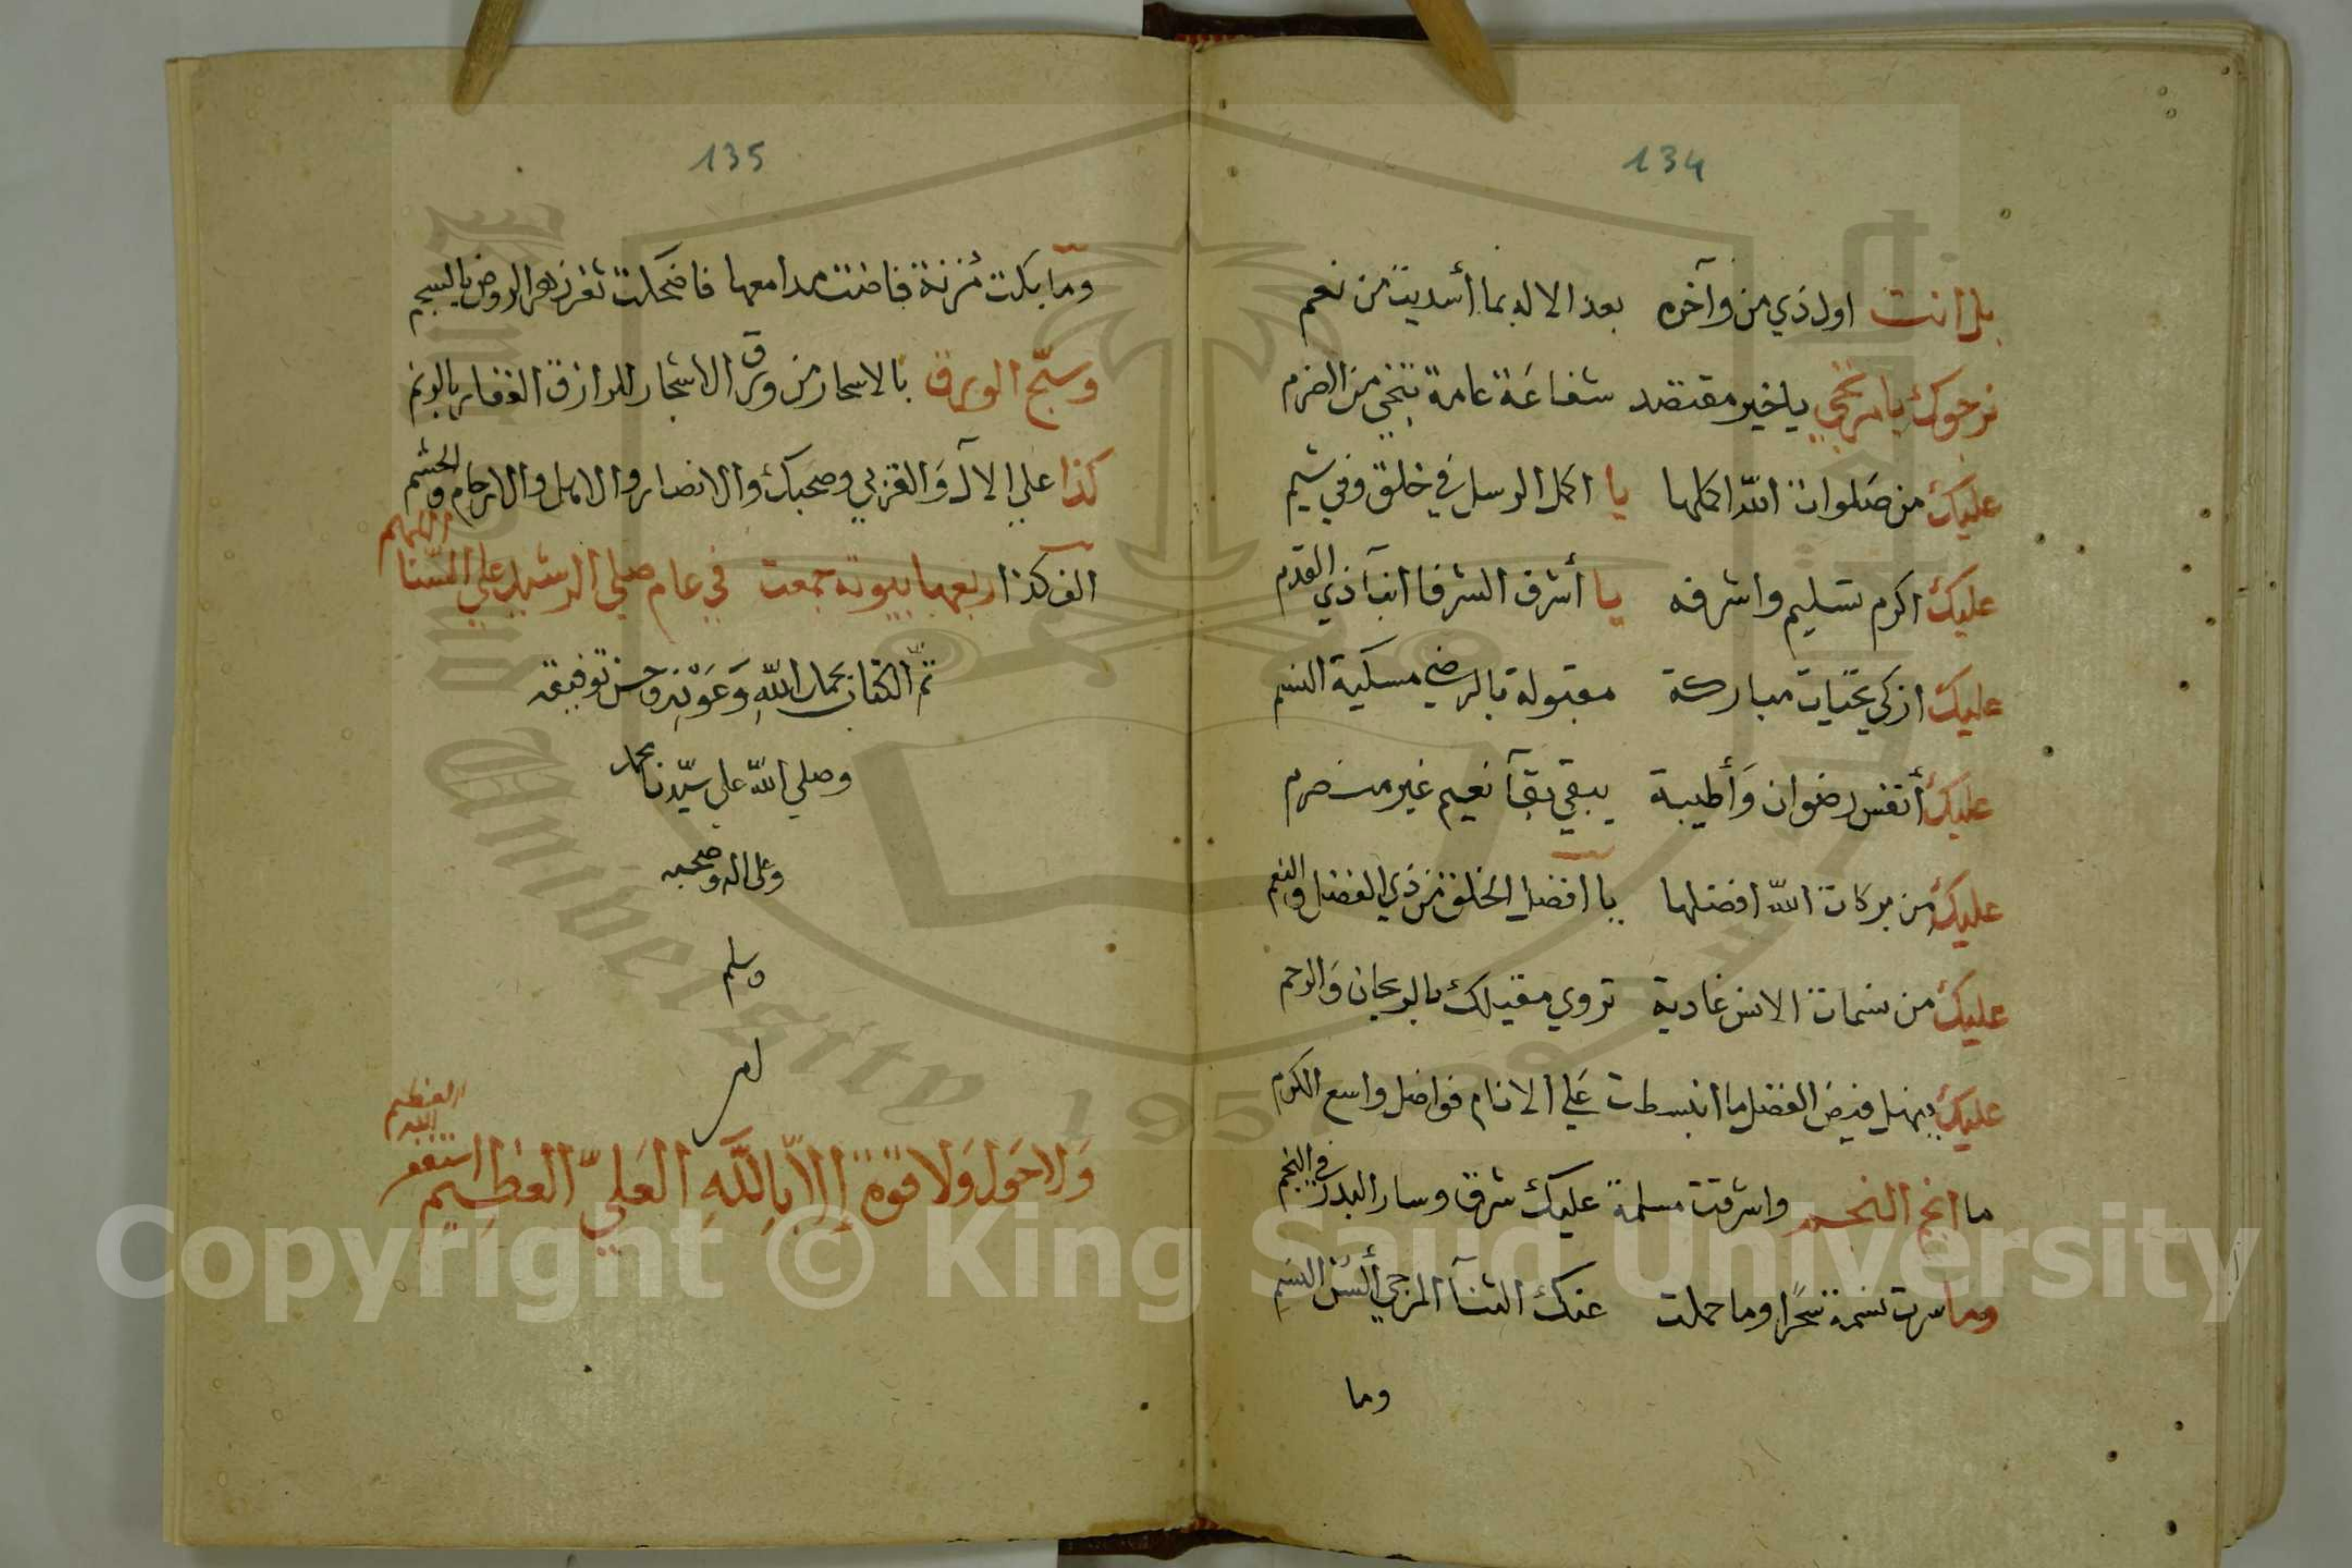 134
بل انت اول ذي من وآخره بعد الاله بما أسديت من نعم
نرجوك يا مرتجي يا خير مقتصد شفاعة عامة تنجي من الضرم
عليك من صلوات الله اكملها يا اكمل الرسل في خلق وفي شيم
عليك اكرم تسليم واشرفه يا أشرف الشرفا ابنآ ذي القدم
عليك ازكي تحيات مباركة مقبولة بالرضي مسكية النسم
عليك أنفس رضوان وأطيبة يبقي بقآ نعيم غير منصرم
عليك من بركات الله افضلها يا افضل الخلق من ذي الفضل والنعم
عليك من نسمات الانس غادية تروي مقيلك بالريحان والرحم
عليك ينهل فيض الفضل ما انبسطت علي الانام فواضل واسع الكرم
ما انجم النجم واشرقت مسلمة عليك شرق وسار البدر في النجم
وما سرت نسمة سحرًا وما حملت عنك الثنآ المرجي ألسن النسم
وما
135
وما بكت مزنة فاضت مدامعها فاضحكت ثغر زهر الروض بالسجم
وسبح الورق بالاسحار من ورق الاشجار للرازق الغفار بالونم
كذا علي الآل والقربي وصحبك والانصار والاهل والارحام والحشم
الف كذا ربعها بيوته جمعت في عام صلي الرشيد علي السنا اللهم
تم الكتاب بحمد الله وعونه وحسن توفيقه
وصلي الله علي سيدنا محمد
وعلى اله وصحبه
وسلم
ولا حول ولا قوة إلا بالله العلي العظيم استغفر الله العظيم
King Saud University 1957
Copyright © King Saud University